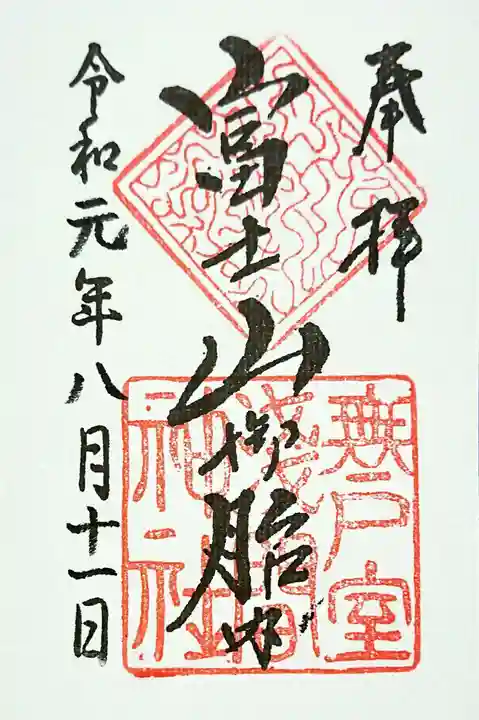 奉拝
富士山御胎内
令和元年八月十一日
無戸室
浅間
神社